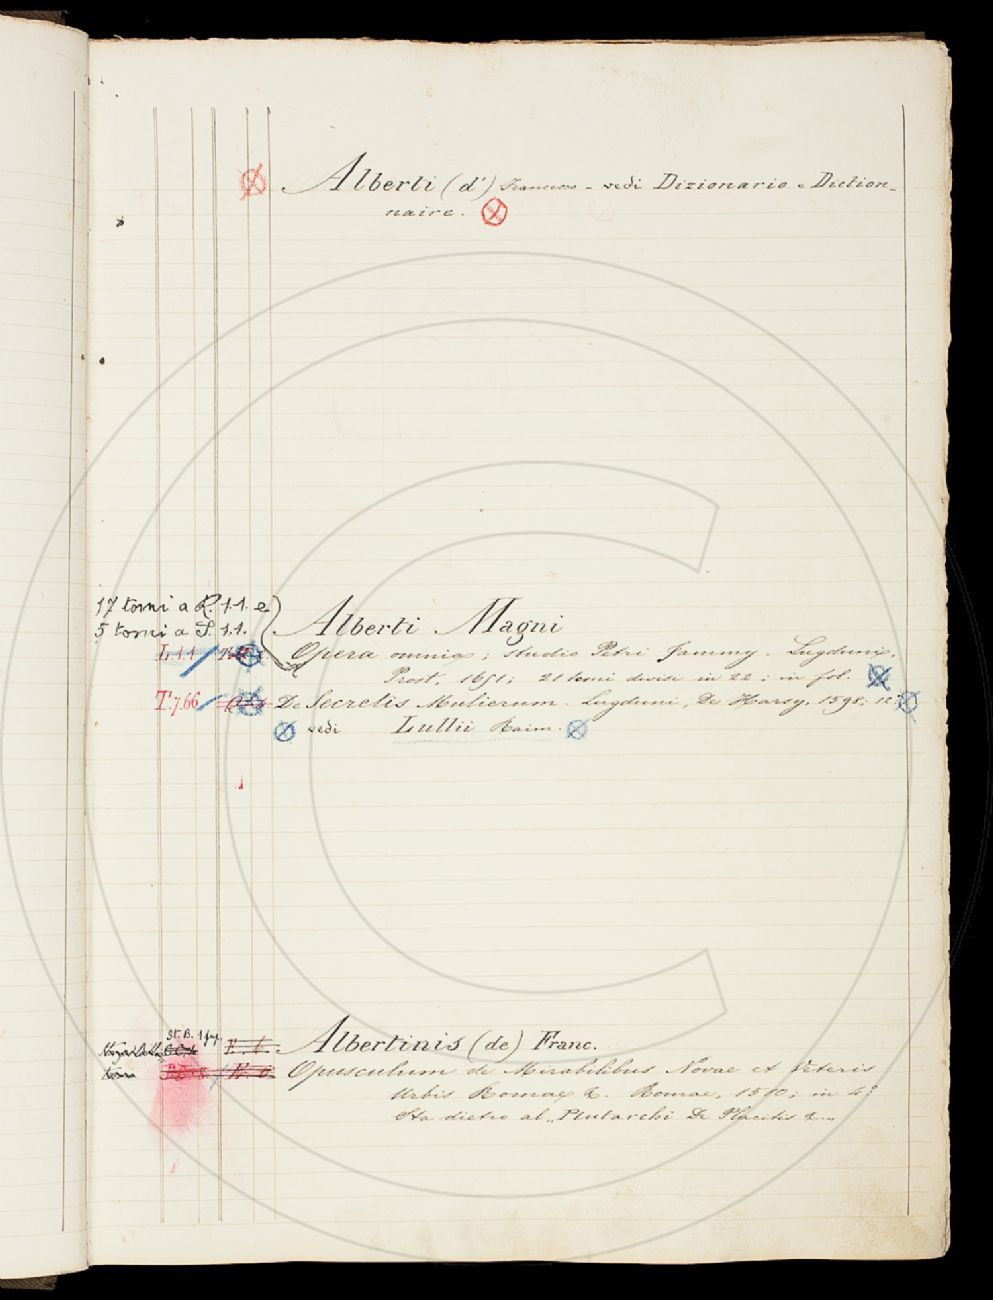 Alberti (d') Francesco - vedi Dizionario e Diction-
naire.
17 tomi a R. 1.1. e
5 tomi a S. 1.1.
Alberti Magni
L 1 1 Opera omnia; studio Petri Jammy. Lugduni,
Prost, 1651; 21 tomi divisi in 22; in fol.
T.7.66 De Secretis Mulierum. Lugduni, De Harsy, 1598; 12°
vedi Lullii Raim.
St. B.
Albertinis (de) Franc.
Opusculum de Mirabilibus Novae et Veteris
Urbis Romae &. Romae, 1510; in 4°
Sta dietro al „Plutarchi De Placitis &„